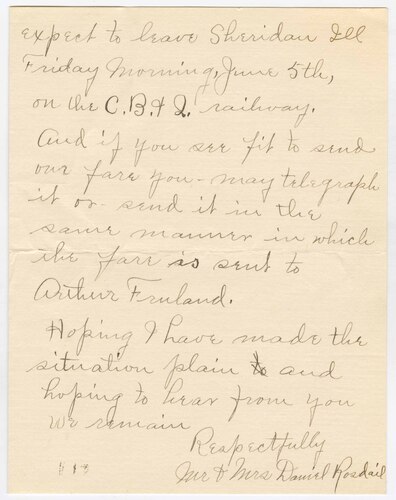 expect to leave Sheridan Ill
Friday Morning, June 5th,
on the C.B.& Q. railway.
And if you see fit to send
our fare you - may telegraph
it or - send it in the
same manner in which
the fare is sent to
Arthur Fruland.
Hoping I have made the
situation plain and
hoping to hear from you
we remain
Respectfully
Mr & Mrs Daniel Rosdail